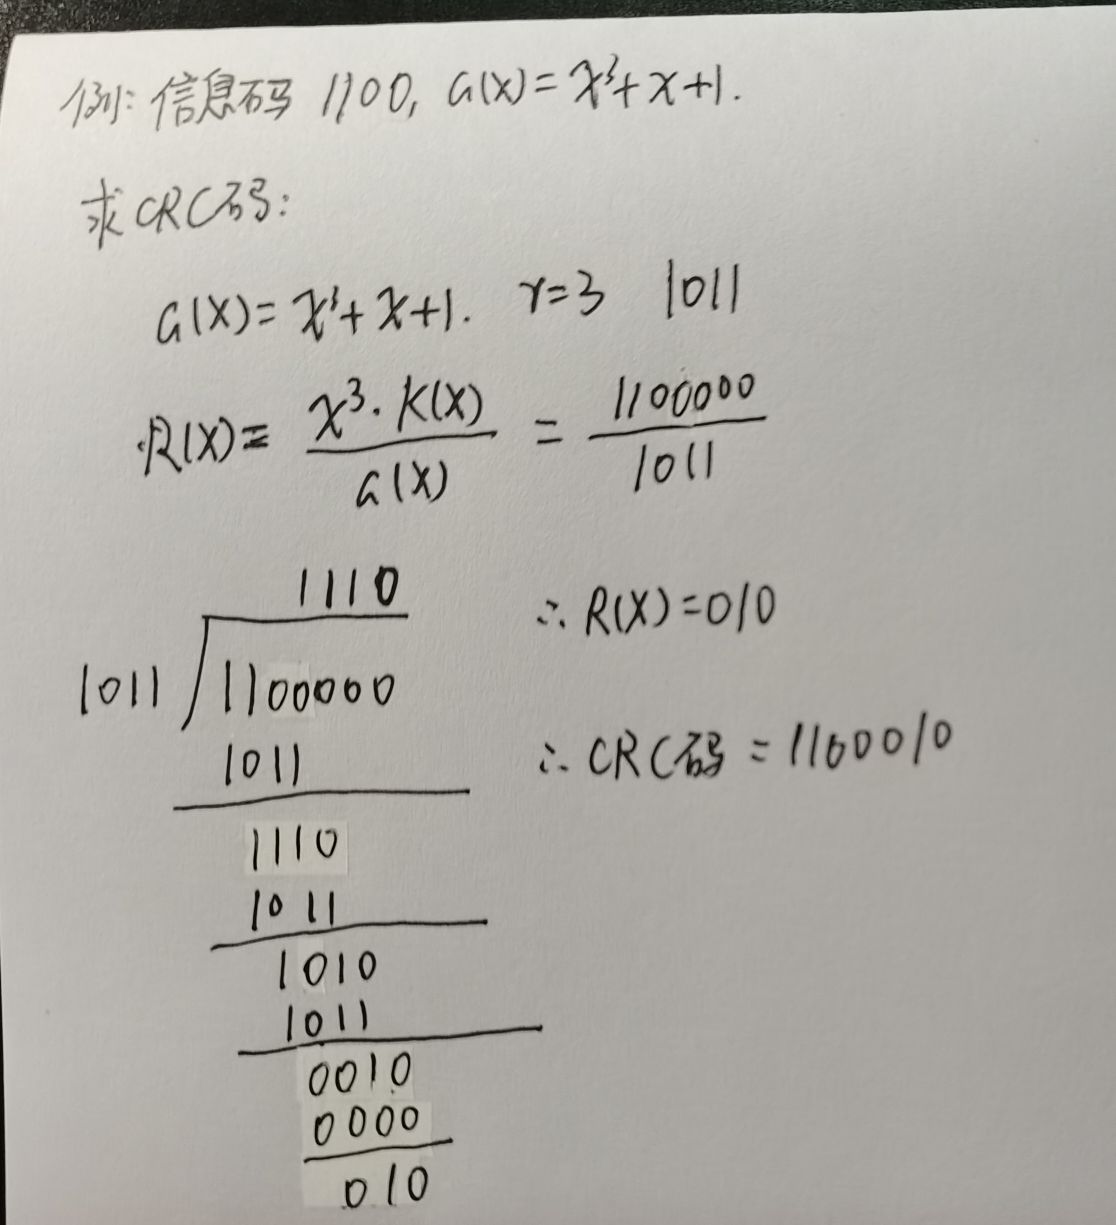 例: 信息码 1100, G(X)=x³+x+1.
求CRC码:
G(X)=x³+x+1. r=3 1011
R(X)= x³·K(X) / G(X) = 1100000 / 1011
1110
1011 ⟌ 1100000
1011
1110
1011
1010
1011
0010
0000
010
∴ R(X)=010
∴ CRC码=1100010